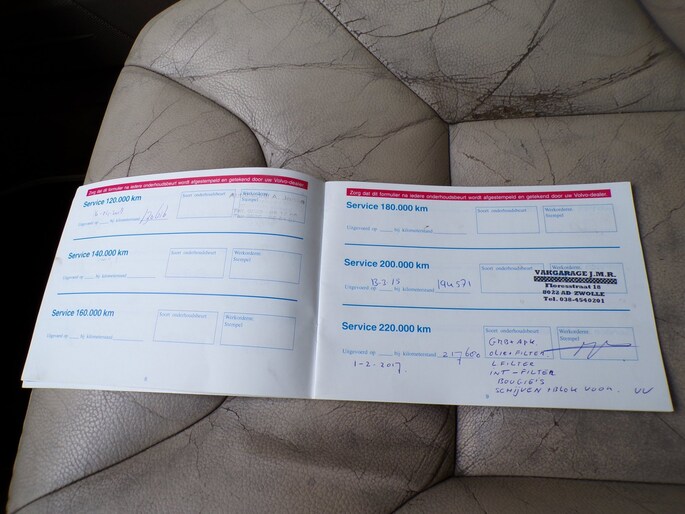 Zorg dat dit formulier na iedere onderhoudsbeurt wordt afgestempeld en getekend door uw Volvo-dealer.
Service 120.000 km
Soort onderhoudsbeurt
Werkorderнr.
Stempel
Uitgevoerd op bij kilometerstand
Service 140.000 km
Soort onderhoudsbeurt
Werkordernr.
Stempel
Uitgevoerd op bij kilometerstand
Service 160.000 km
Soort onderhoudsbeurt
Werkordernr.
Stempel
Uitgevoerd op bij kilometerstand
Zorg dat dit formulier na iedere onderhoudsbeurt wordt afgestempeld en getekend door uw Volvo-dealer.
Service 180.000 km
Soort onderhoudsbeurt
Werkordernr.
Stempel
Uitgevoerd op bij kilometerstand
Service 200.000 km
VAKGARAGE J.M.R.
Floresstraat 18
8022 AD ZWOLLE
Tel. 038-4540201
Uitgevoerd op bij kilometerstand 194571
Service 220.000 km
Soort onderhoudsbeurt
Werkordernr.
Stempel
Uitgevoerd op bij kilometerstand 217600
1-2-2017
GRB + APK
OLIE + FILTER
L FILTER
INT-FILTER
BOUGIE'S
SCHIJVEN + BLOK VOOR.